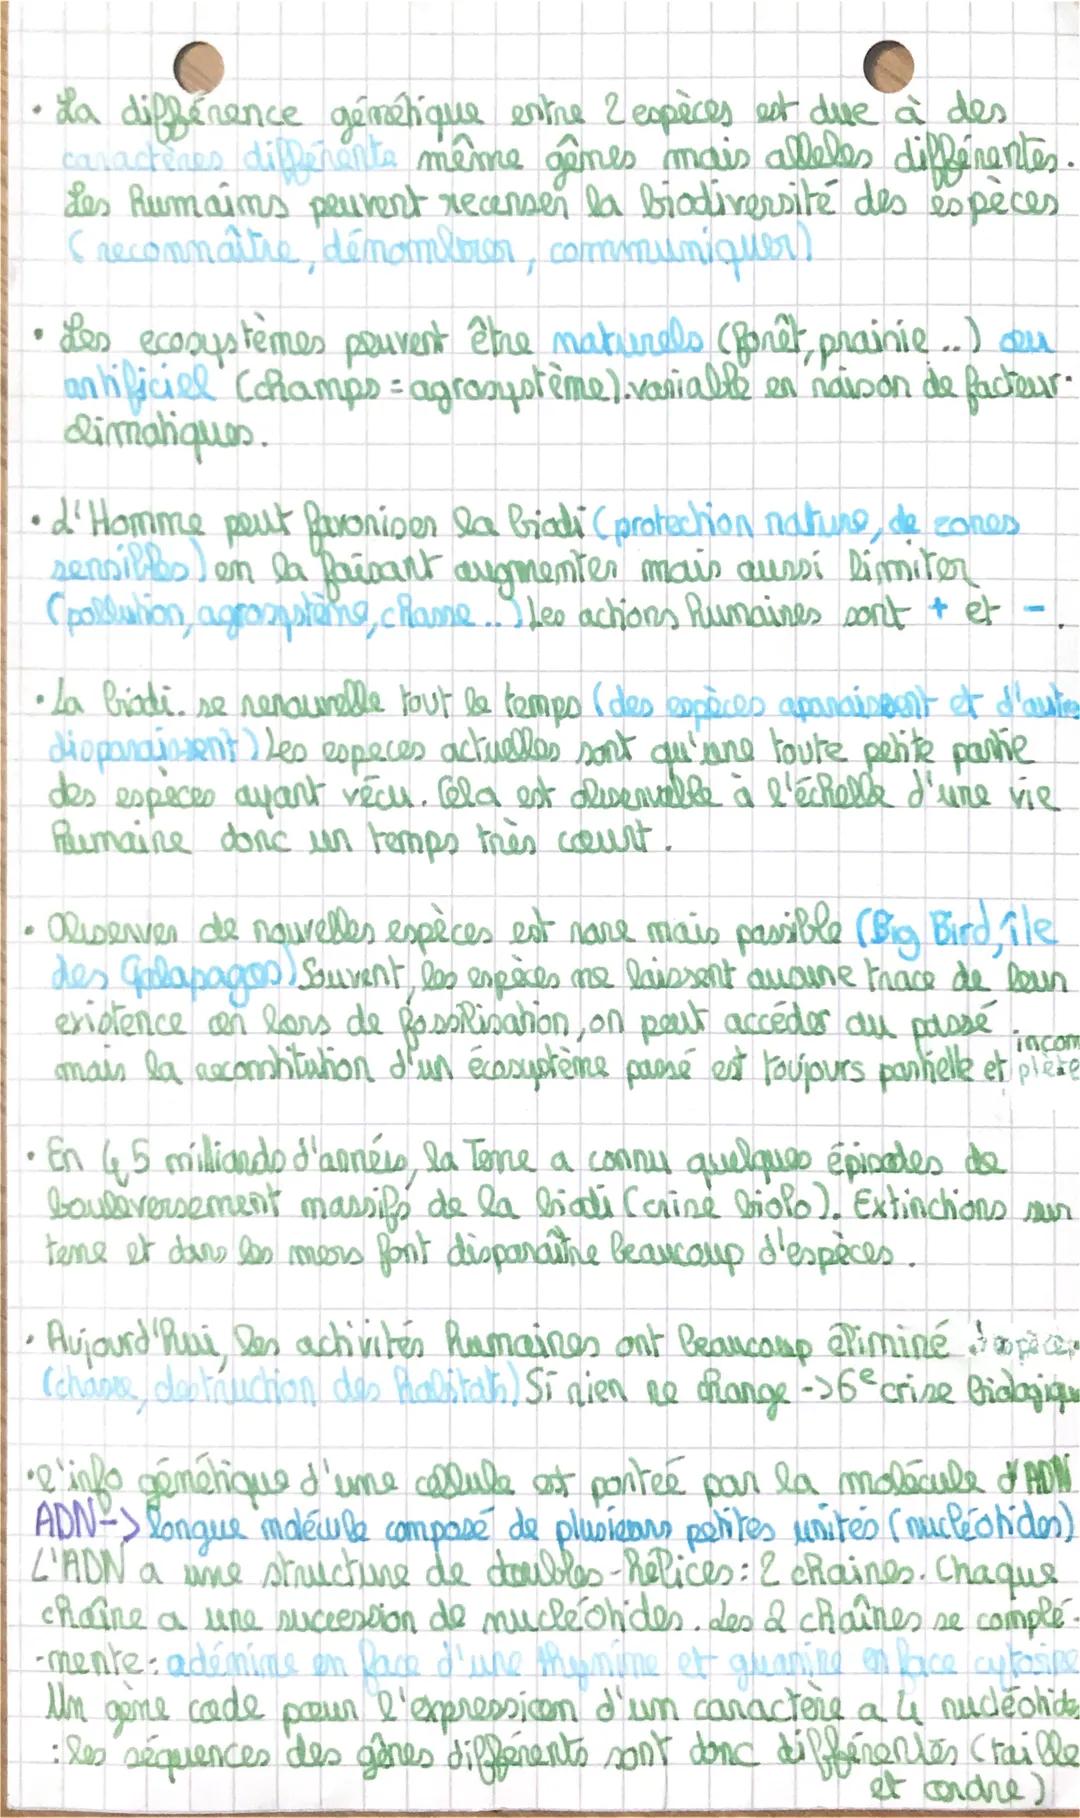 • La différence génétique entre 2 espèces est due à des
caractères différents même gênes mais alleles différentes.
Les humains peuvent recenser la biodiversité des espèces
(reconnaître, dénombrer, communiquer)
• Les ecosystèmes peuvent être naturels (forêt, prairie ..) ou
artificiel (champs = agrosystème). variable en raison de facteur
climatiques.
• L'Homme peut favoriser la biodi (protection nature, de zones
sensibles) en la faisant augmenter mais aussi limiter
(pollution, agrosystème, chasse ..) Les actions humaines sont + et -.
• La biodi. se renouvelle tout le temps (des espèces aparaissent et d'autre
disparaissent) Les especes actuelles sont qu'une toute petite partie
des espèces ayant vécu. Cela est observable à l'échelle d'une vie
humaine donc un temps très court.
• Observer de nouvelles espèces est rare mais possible (Big Bird, île
des Galapagos) Souvent, les espèces ne laissent aucune trace de leur
existence en lors de fossilisation, on peut accéder au passé
mais la reconstitution d'un écosystème passé est toujours partielle et incom
plète
• En 4,5 milliards d'années, la Terre a connu quelques épisodes de
bouleversement massifs de la biodi (crise biolo). Extinctions sur
terre et dans les mers font disparaître beaucoup d'espèces.
• Aujourd'hui, les activités humaines ont beaucoup éliminé d'espèces
(chasse, destruction des habitats) Si rien ne change -> 6e crise biologique
• l'info génétique d'une cellule est portée par la molécule d'ADN
ADN -> longue molécule composé de plusieurs petites unités (nucléotides)
L'ADN a une structure de doubles-hélices : 2 chaines. Chaque
chaîne a une succession de nucléotides. Les 2 chaînes se complé-
-mente : adénine en face d'une thymine et guanine en face cytosine
Un gène code pour l'expression d'un caractère a 4 nucléotides
: les séquences des gênes différents sont donc différentes (taille
et ordre)